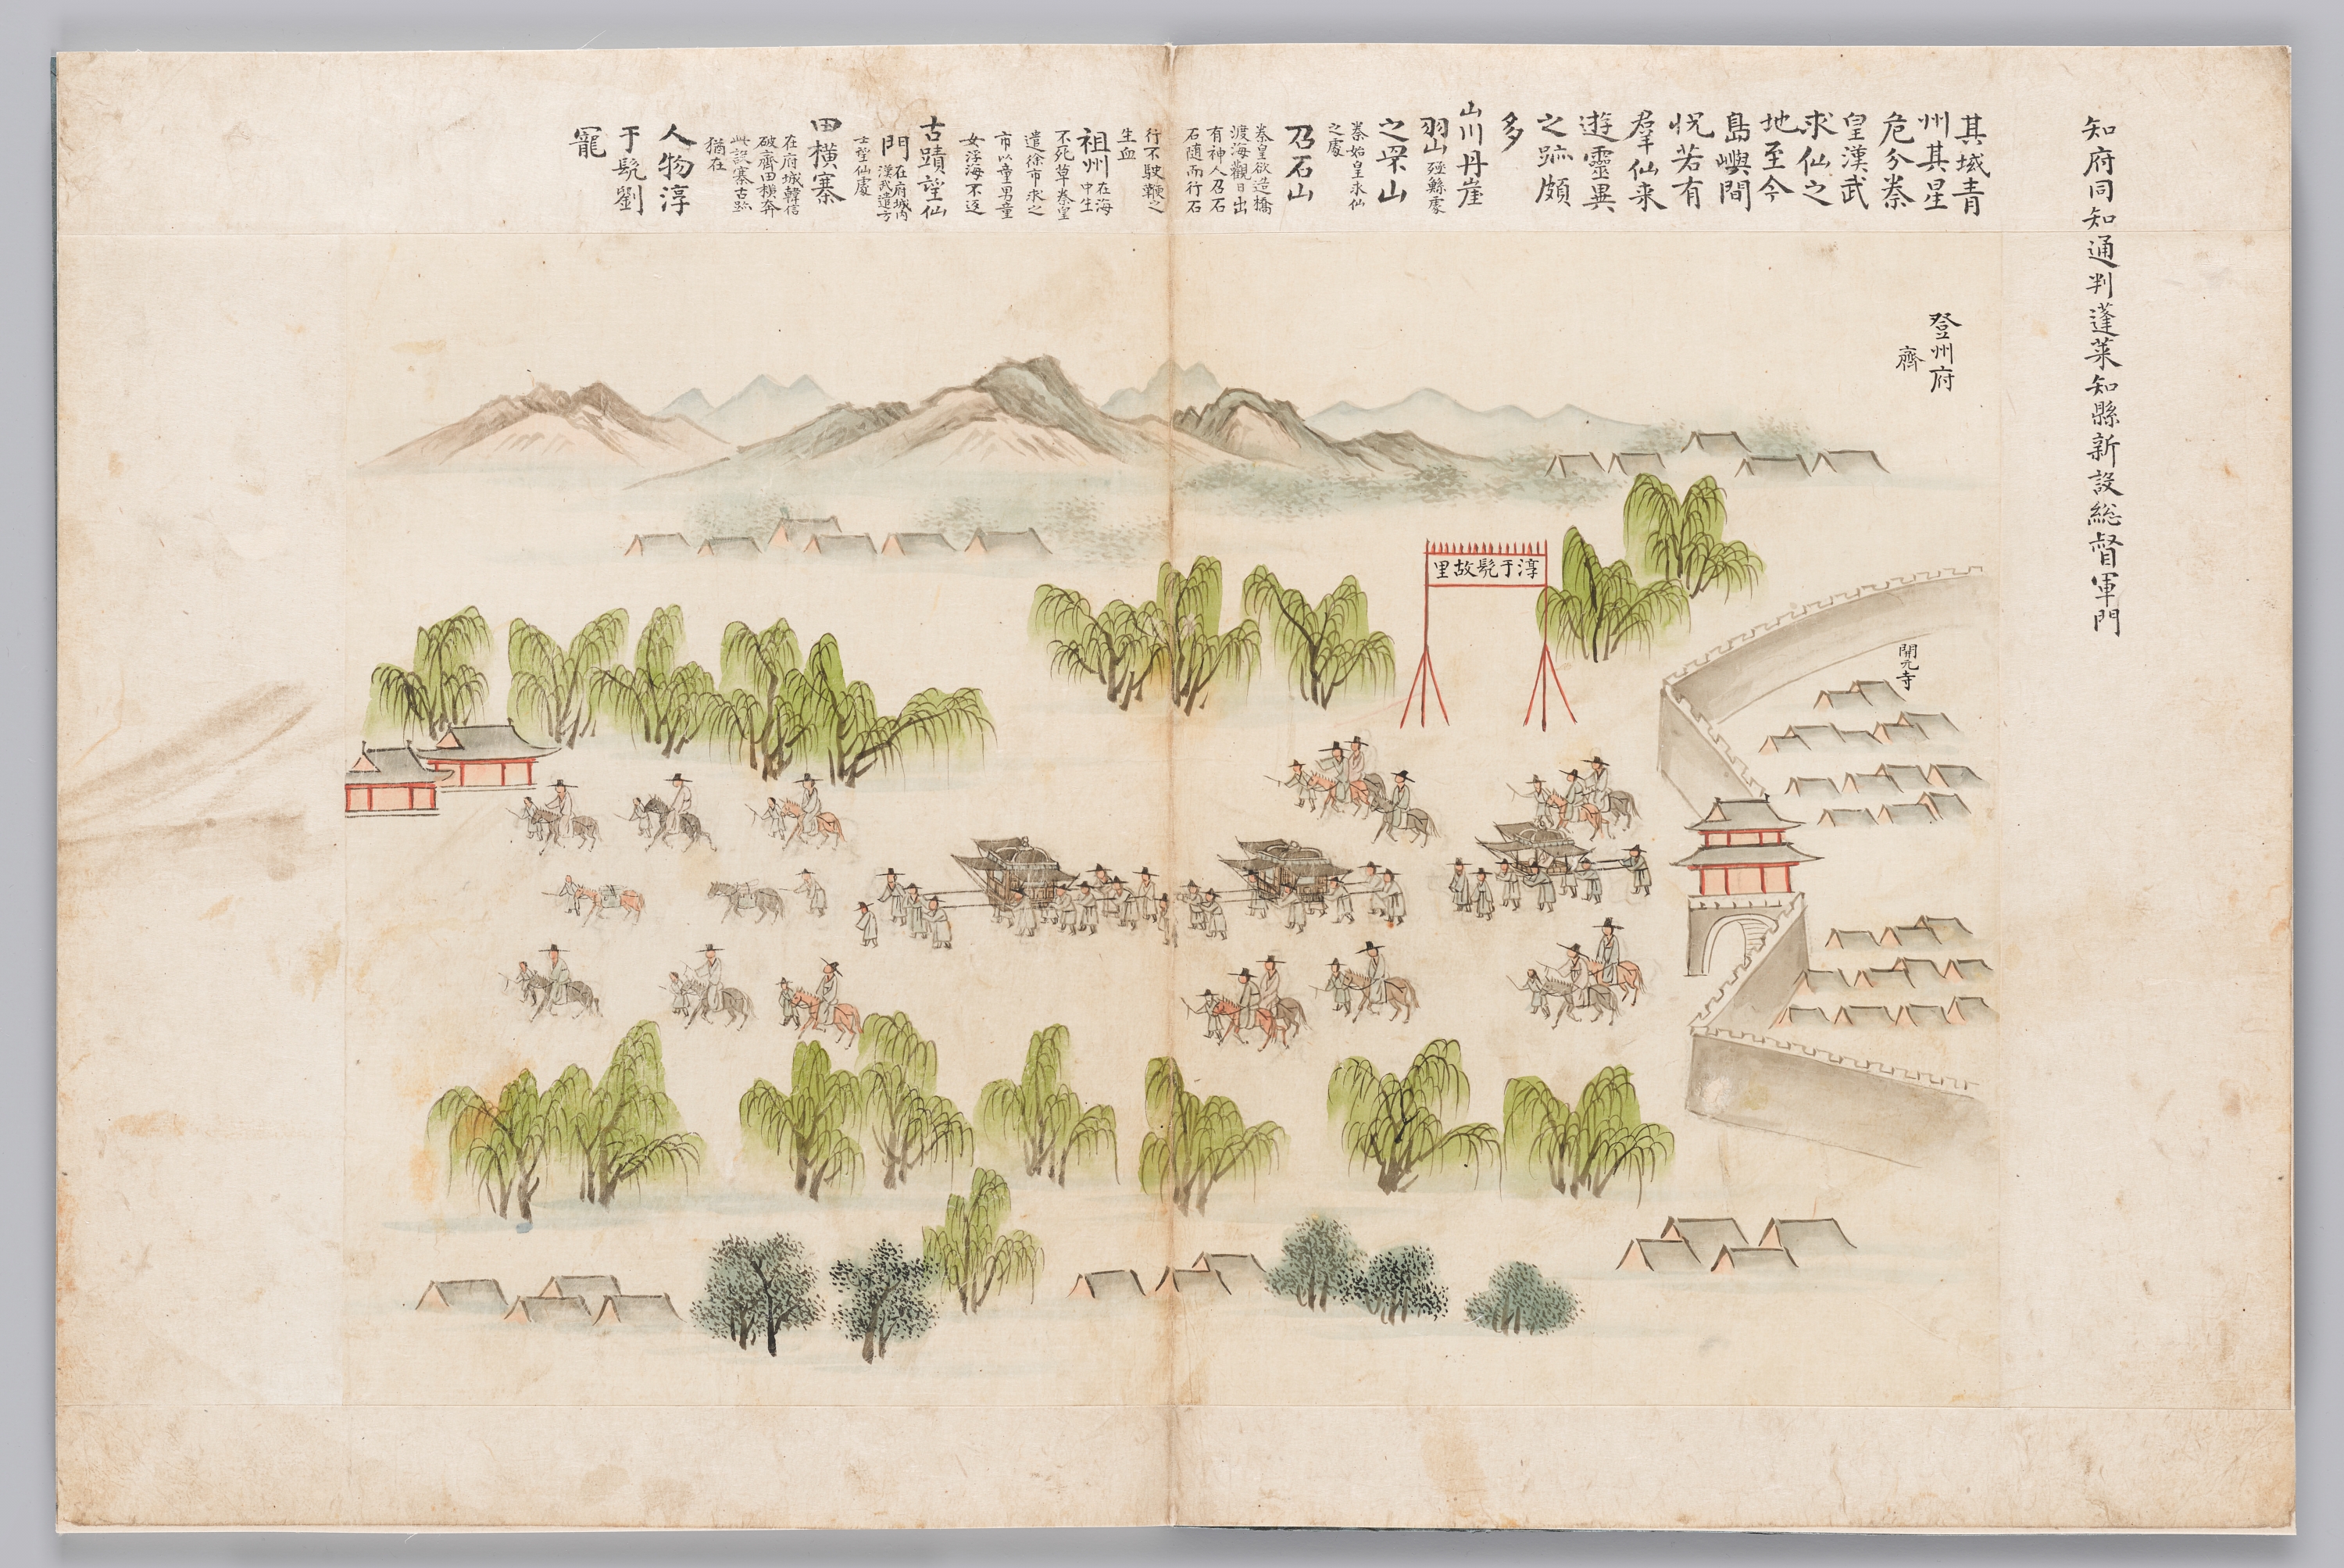 知府同知通判蓬萊知縣新設総督軍門
其域青
州其星
危分秦
皇漢武
求仙之
地至今
島嶼間
怳若有
羣仙来
遊靈異
之跡頗
多
山川丹崖
羽山殛鯀處
之罘山
秦始皇求仙
之處
召石山
秦皇欲造橋
渡海觀日出
有神人召石
石隨而行石
行不駛鞭之
生血
祖州在海
中生
不死草秦皇
遣徐市求之
市以童男童
女浮海不返
古蹟望仙
門在府城内
漢武遣方
士望仙處
田橫寨
在府城韓信
破齊田橫奔
此設寨古跡
猶在
人物淳
于髡劉
寵
登州府
齊
淳于髡故里
開元寺